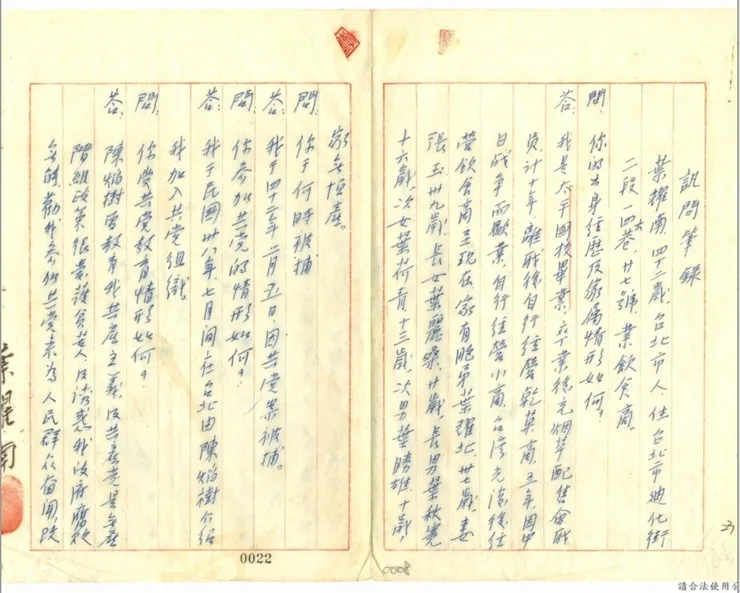 訊問筆錄
葉耀南，四十二歲，台北市人，住台北市迪化街
二段一四六巷廿七號，業飲食商。
問：你的出身經歷及家属情形如何？
答：我是太平国校畢業，卒業後充烟草配售會職
員計十年，離職後自行經營乾菓商五年，因中
日战争而歇業，自行經營小商，台湾光復後經
營飲食商至現在，家有胞弟葉耀北卅七歲，妻
張玉卅九歲，長女葉麗 廿歲，長男葉秋
十六歲，次女葉荷青十三歲，次男葉勝雄十歲，
家無恒產。
問：你于何時被捕
答：我于四十三年二月五日，因共党案被捕。
問：你参加共党的情形如何？
答：我于民國卅八年七月間在台北由陳焰樹介紹
我加入共党組織
問：你受共党教育情形如何？
答：陳焰樹曾教育我共產主義，及共產党是無產
階級政策很 護貧苦人，及誘惑我政府腐敗
無能，勸我参加共党来為人民群众奋闘，改
葉耀南
0022
0008
23
請合法使用公